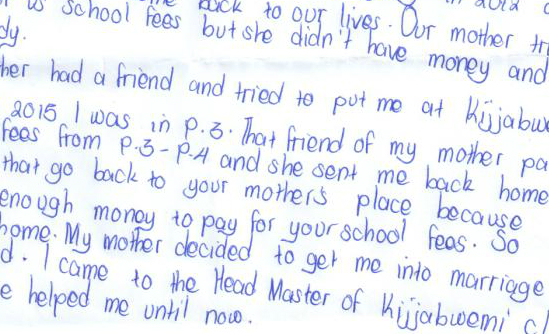 us school fees back to our lives. Our mother tri
dy. but she didn't have money and
her had a friend and tried to put me at Kijjabwe
2015 I was in p.3. That friend of my mother pa
fees from p.3-p.4 and she sent me back home
that go back to your mother's place because
enough money to pay for your school fees. So
home. My mother decided to get me into marriage
d. I came to the Head Master of Kijjabwemi
e helped me until now.